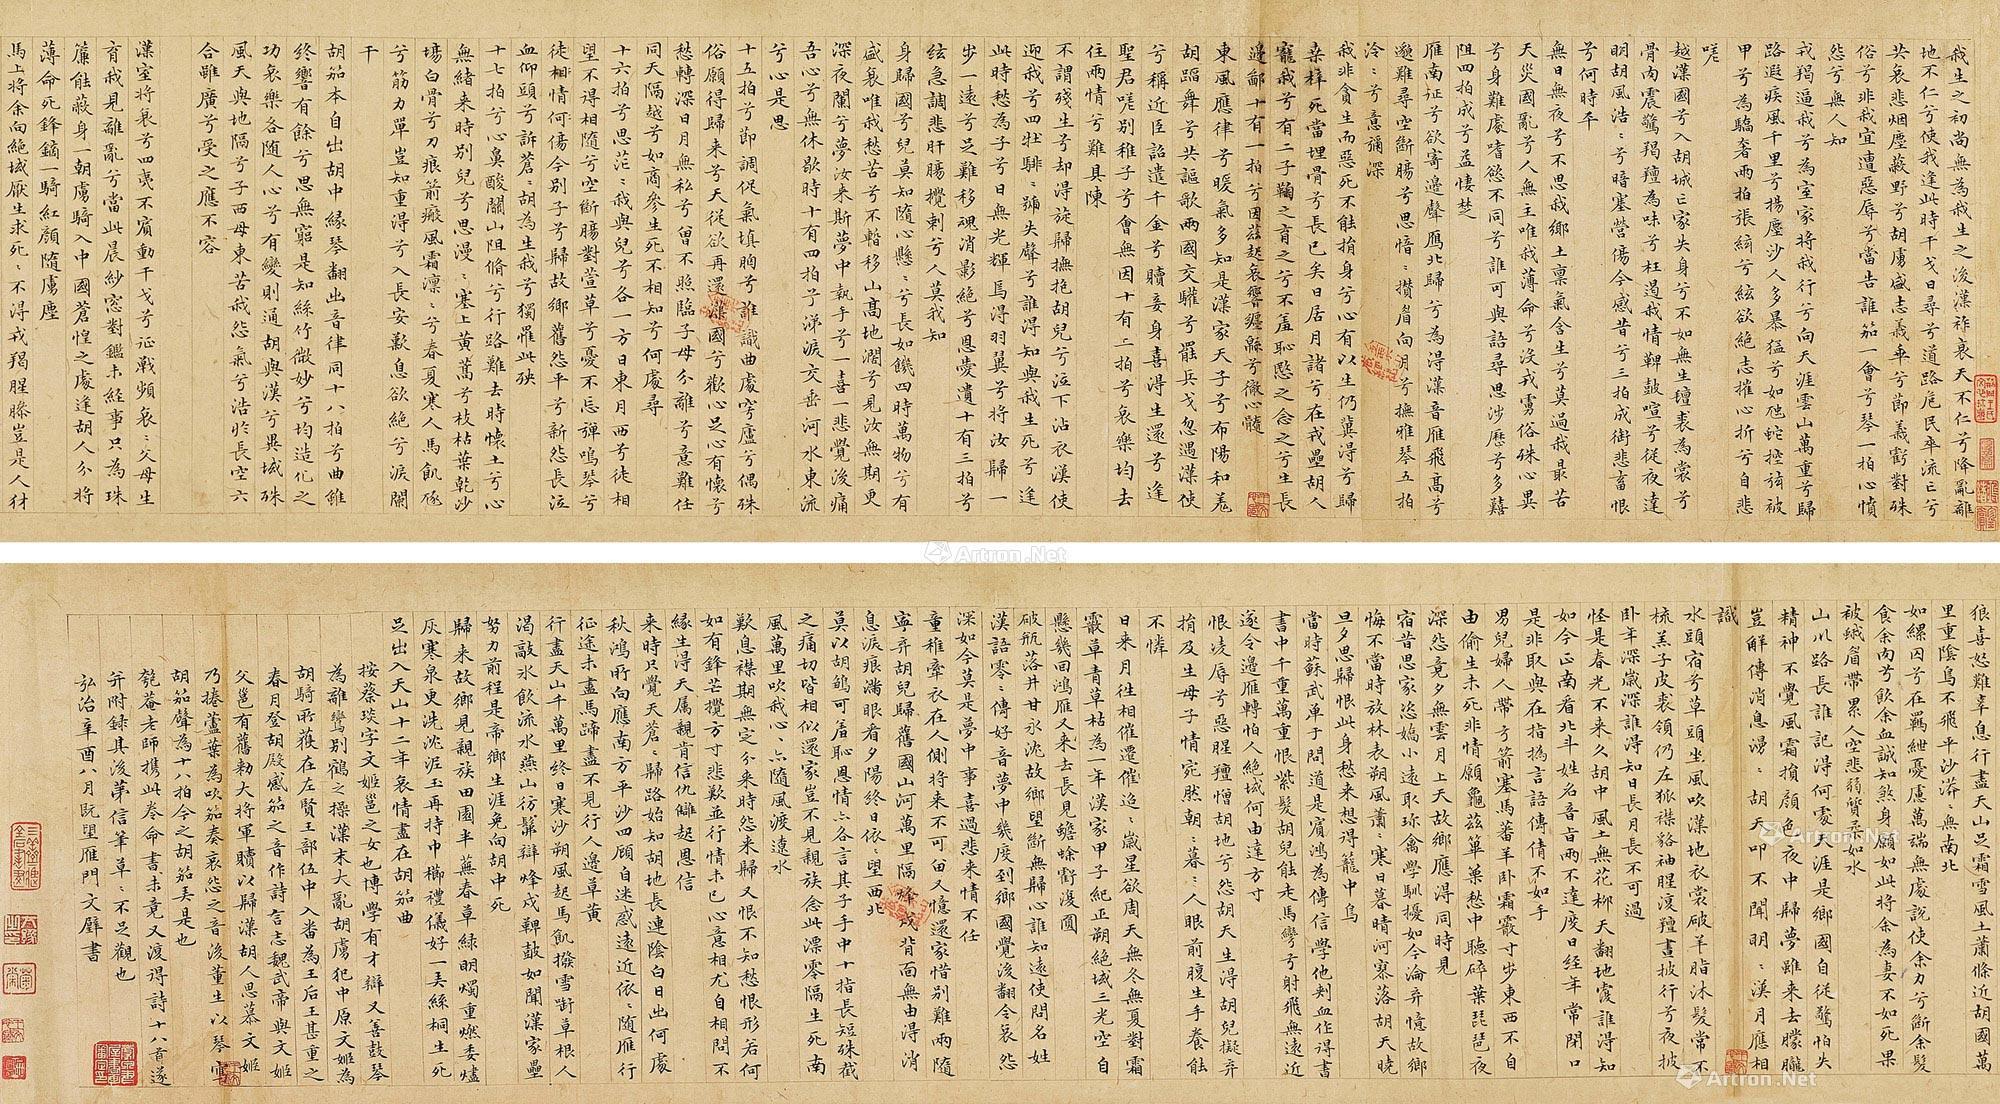 我生之初尚無為我生之後漢祚衰天不仁兮降亂離
地不仁兮使我逢此時干戈日尋兮道路危民卒流亡兮
共哀悲烟塵蔽野兮胡虜盛志義乖兮節義虧對殊
俗兮非我宜遭惡辱兮當告誰笳一會兮琴一拍心憤
怨兮無人知
戎羯逼我兮為室家將我行兮向天涯雲山萬重兮歸
路遐疾風千里兮揚塵沙人多暴猛兮如虺蛇控弦被
甲兮為驕奢兩拍張絃兮絃欲絕志摧心折兮自悲
嗟
越漢國兮入胡城亡家失身兮不如無生氊裘為裳兮
骨肉震驚羯羶為味兮枉遏我情鞞鼓喧兮從夜達
明胡風浩〻兮暗塞營傷今感昔兮三拍成銜悲畜恨
兮何時平
無日無夜兮不思我鄉土稟氣含生兮莫過我最苦
天災國亂兮人無主唯我薄命兮沒戎虜俗殊心異
兮身難處嗜慾不同兮誰可與語尋思涉歷兮多囏
阻四拍成兮益悽楚
雁南征兮欲寄邊聲雁北歸兮為得漢音雁飛高兮
邈難尋空斷腸兮思愔〻攢眉向月兮撫雅琴五拍
泠〻兮意彌深
我非貪生而惡死不能捐身兮心有以生仍冀得兮歸
桑梓死當埋骨兮長已矣日居月諸兮在戎壘胡人
寵我兮有二子鞠之育之兮不羞恥愍之念之兮生長
邊鄙十有一拍兮因茲起哀響纏緜兮徹心髓
東風應律兮暖氣多知是漢家天子兮布陽和羌
胡蹈舞兮共謳歌兩國交驩兮罷兵戈忽遇漢使
兮稱近臣詔遣千金兮贖妾身喜得生還兮逢
聖君嗟別稚子兮會無因十有二拍兮哀樂均去
住兩情兮難具陳
不謂殘生兮却得旋歸撫抱胡兒兮泣下沾衣漢使
迎我兮四牡騑〻號失聲兮誰得知與我生死兮逢
此時愁為子兮日無光輝焉得羽翼兮將汝歸一
步一遠兮足難移魂消影絕兮恩愛遺十有三拍兮
絃急調悲肝腸攪刺兮人莫我知
身歸國兮兒莫知隨心懸〻兮長如饑四時萬物兮有
盛衰唯我愁苦兮不暫移山高地濶兮見汝無期更
深夜闌兮夢汝來斯夢中執手兮一喜一悲覺後痛
吾心兮無休歇時十有四拍兮涕淚交垂河水東流
兮心是思
十五拍兮節調促氣填胸兮誰識曲處穹廬兮偶殊
俗願得歸來兮天從欲再還漢國兮歡心足心有懷兮
愁轉深日月無私兮曾不照臨子母分離兮意難任
同天隔越兮如商參生死不相知兮何處尋
十六拍兮思茫〻我與兒兮各一方日東月西兮徒相
望不得相隨兮空斷腸對萱草兮憂不忘彈鳴琴兮
徒相情何傷今別子兮歸故鄉舊怨平兮新怨長泣
血仰頭兮訴蒼〻胡為生我兮獨罹此殃
十七拍兮心鼻酸關山阻脩兮行路難去時懷土兮心
無緒來時別兒兮思漫〻塞上黃蒿兮枝枯葉乾沙
塲白骨兮刀痕箭瘢風霜凛〻兮春夏寒人馬飢豗
兮筋力單豈知重得兮入長安歎息欲絕兮淚闌
干
胡笳本自出胡中緣琴翻出音律同十八拍兮曲雖
終響有餘兮思無窮是知絲竹微妙兮均造化之
功哀樂各隨人心兮有變則通胡與漢兮異域殊
風天與地隔兮子西母東苦我怨氣兮浩於長空六
合雖廣兮受之應不容
漢室將衰兮四夷不賓動干戈兮征戰頻哀〻父母生
育我見離亂兮當此晨紗窓對鑑未經事只為珠
簾能蔽身一朝虜騎入中國蒼惶之處逢胡人分將
薄命死鋒鏑一騎紅顏隨虜塵
馬上將余向絕域厭生求死〻不得戎羯腥膻豈是人豺
狼喜怒難辜息行盡天山足霜雪風土蕭條近胡國萬
里重陰鳥不飛平沙莽〻無南北
如縲囚兮在羈紲憂慮萬端無處說使余力兮斷余髮
食余肉兮飲余血誠知煞身願如此將余為妻不如死果
被蛾眉帶累人空悲弱質柔如水
山川路長誰記得何處天涯是鄉國自從驚怕失
精神不覺風霜損顏色夜中歸夢雖來去朦朧
豈解傳消息漫〻胡天叩不聞明〻漢月應相
識
水頭宿兮草頭坐風吹漢地衣裳破羊脂沐髮常不
梳羔子皮裘領仍左狐襟貉袖腥復羶晝披行兮夜披
卧年深歲深誰得知日長月長不可過
怪是春光不來久胡中風土無花柳天翻地覆誰得知
如今正南看北斗姓名音旨兩不達度日經年常閉口
是非取與在指撝言語傳情不如手
男兒婦人帶弓箭塞馬蕃羊卧霜霰寸步東西不自
由偷生未死非情願龜茲篳篥愁中聽碎葉琵琶夜
深怨竟夕無雲月上天故鄉應得同時見
宿昔思家恣嬌小遠取珍禽學馴擾如今淪弃憶故鄉
悔不當時放林表朔風蕭〻寒日暮晴河寥落胡天曉
旦夕思歸恨此身愁來想得籠中鳥
當時蘇武单于問道是賓鴻為傳信學他刺血作得書
書中千重萬重恨紫髮胡兒能走馬彎弓射飛無遠近
遂令邊雁轉怕人絕域何由達方寸
恨凌辱兮惡腥羶憎胡地兮怨胡天生得胡兒擬弃
捐及生母子情宛然朝〻暮〻人眼前腹生手養能
不憐
日來月徃相催遷催迨〻歲星欲周天無冬無夏對霜
霰草青草枯為一年漢家甲子紀正朔絕域三光空自
懸幾回鴻雁又來去長見蟾蜍虧復圓
破瓶落井甘永沈故鄉望斷無歸心誰知遠使問名姓
漢語零〻傳好音夢中幾度到鄉國覺後翻令哀怨
深如今莫是夢中事喜過悲來情不任
童稚牽衣在人側將來不可留又憶還家惜別難兩隨
寧弃胡兒歸舊國山河萬里隔烽戍背面無由得消
息淚痕滿眼看夕陽終日依〻望西北
莫以胡鶵可羞恥恩情亦各言其子手中十指長短殊截
之痛切皆相似還家豈不見親族念此漂零隔生死南
風萬里吹我心〻亦隨風渡遼水
歎息襟期無定分來時怨來歸又恨不知愁恨形若何
如有鋒芒攪方寸悲歎並行情未已心意相尤自相問不
緣生得天屬親肯信仇讎起恩信
來時只覺天蒼〻歸路始知胡地長連陰白日出何處
秋鴻所向應南方平沙四顧自迷惑遠近依〻隨雁行
征途未盡馬蹄盡不見行人邊草黃
行盡天山千萬里終日寒沙朔風起馬飢撥雪齗草根人
渴敲氷飲流水燕山彷髴辯烽戍鞞鼓如聞漢家壘
努力前程是帝鄉生涯免向胡中死
歸來故鄉見親族田園半蕪春草綠明燭重燃委燼
灰寒泉更洗沈泥玉再持巾櫛禮儀好一弄絲桐生死
足出入天山十二年哀情盡在胡笳曲
按蔡琰字文姬邕之女也博學有才辯又善鼓琴
為離鸞別鶴之操漢末大亂胡虜犯中原文姬為
胡騎所獲在左賢王部伍中入番為王后王甚重之
春月登胡殿感笳之音作詩言志魏武帝與文姬
父邕有舊勅大將軍贖以歸漢胡人思慕文姬
乃捲蘆葉為吹笳奏哀怨之音後董生以琴寫
胡笳聲為十八拍今之胡笳弄是也
匏菴老師携此卷命書未竟又渡得詩十八首遂
并附錄其後第信筆草〻不足觀也
弘治辛酉八月既望雁門文壁書
Artron.Net
Artron.Net
Artron.Net